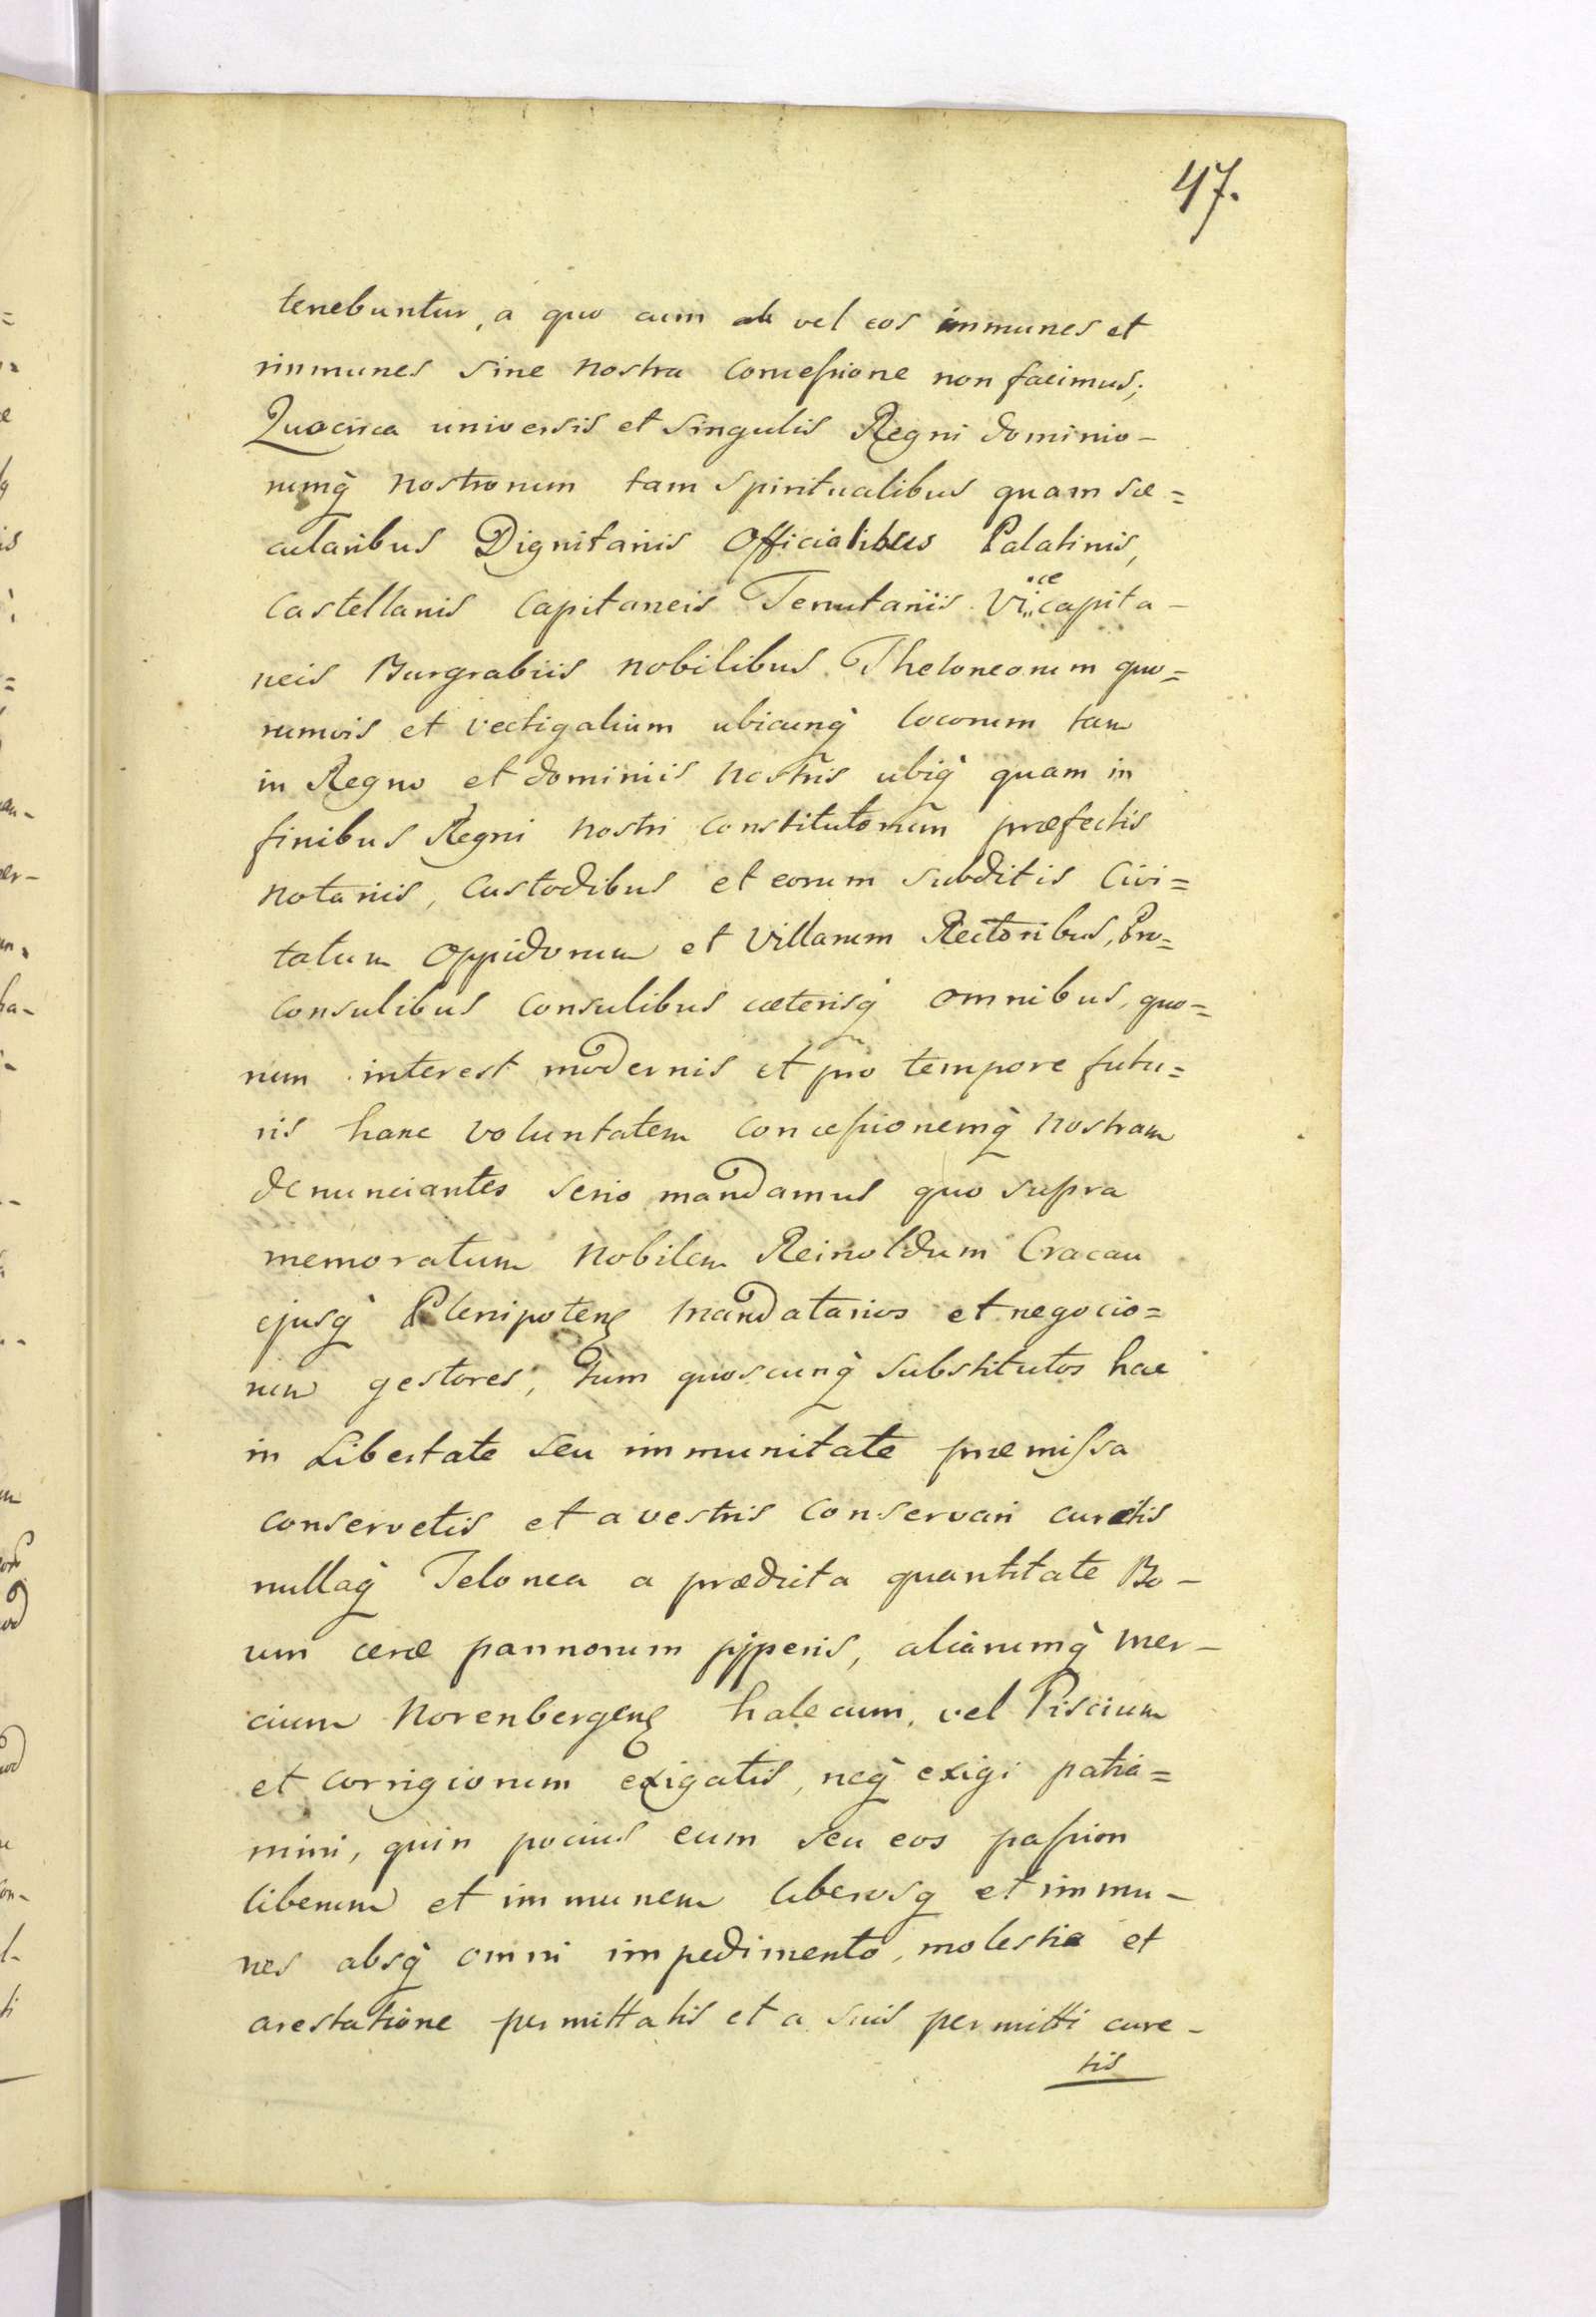 47.
tenebuntur, a quo cum vel eos immunes et
immunes sine nostra concessione non facimus;
Quocirca universis et singulis Regni dominio-
rumq̀ nostrorum tam Spiritualibus quam sæ=
cularibus Dignitariis Officialibus Palatinis,
Castellanis Capitaneis Tenutariis Vicecapita-
neis Burgrabiis nobilibus Theloneorum quo=
rumvis et vectigalium ubicunq̀ locorum tam
in Regno et dominiis nostris ubiq̀ quam in
finibus Regni nostri constitutorum præfectis
notariis, Custodibus et eorum subditis Civi=
tatum Oppidorum et Villarum Rectoribus, Pro=
consulibus Consulibus cæterisq̀ omnibus, quo=
rum interest modernis et pro tempore futu=
ris hanc voluntatem concessionemq̀ nostram
denunciantes serio mandamus quo supra
memoratum Nobilem Reinoldum Cracau
ejusq̀ Plenipotenȩ Mandatarios et negocio=
rum gestores, tum quoscunq̀ substitutos hac
in Libertate seu immunitate præmissa
conservetis et a vestris conservari curetis
nullaq̀ Telonea a prædicta quantitate Bo-
um ceræ pannorum pijperis, aliarumq̀ mer-
cium Norenbergenȩ halecum, vel Piscium
et corrigiorum exigatis, neq̀ exigi patia=
mini, quin pocius eum seu eos passim
liberum et immunem liberosq̀ et immu-
nes absq̀ omni impedimento, molestia et
arestatione permittatis et a suis permitti cure-
tis